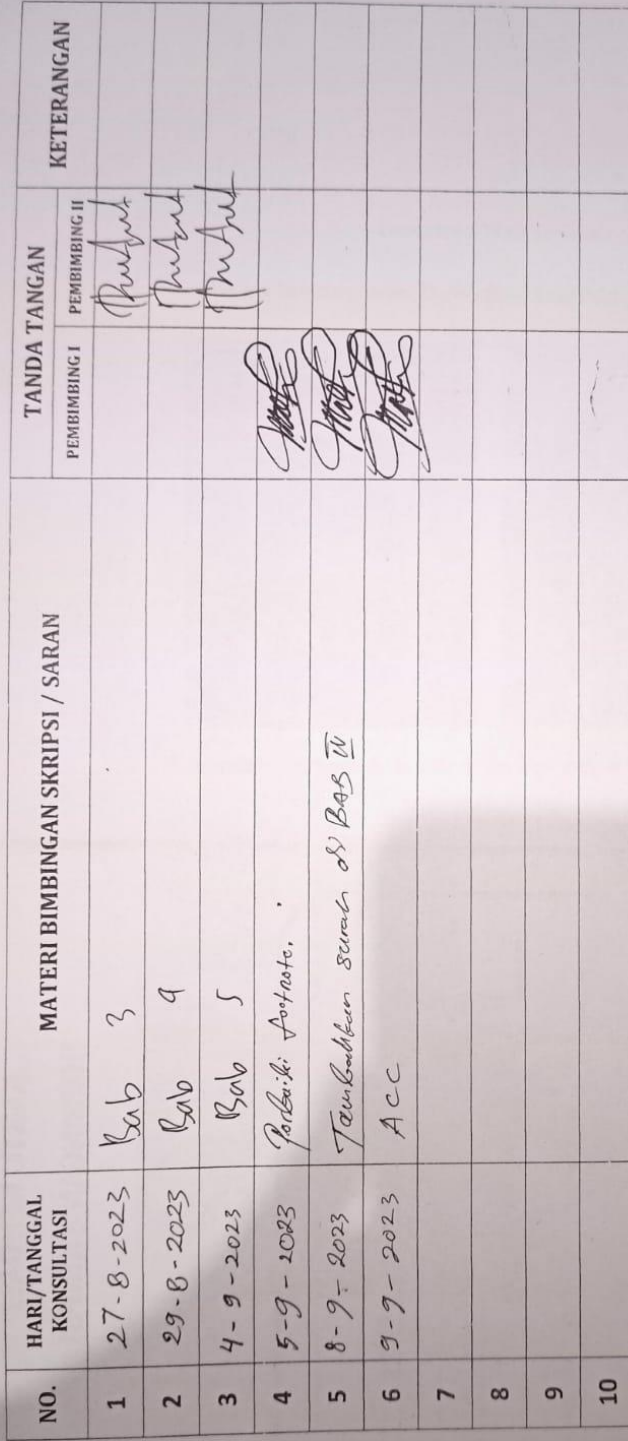 NO.
HARI/TANGGAL
KONSULTASI
MATERI BIMBINGAN SKRIPSI / SARAN
TANDA TANGAN
PEMBIMBING I
PEMBIMBING II
KETERANGAN
1 27-8-2023 Bab 3
2 29-8-2023 Bab 4
3 4-9-2023 Bab 5
4 5-9-2023 Perbaiki footnote.
5 8-9-2023 Tambahkan surah di BAB IV
6 9-9-2023 ACC
7
8
9
10